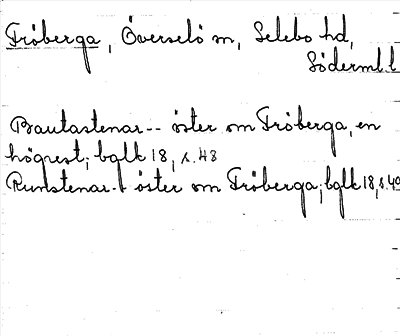 Fröberga, Överselö sn, Selebo hd,
Söderml. l.
Bautastenar -- öster om Fröberga, en
högrest; bglk 18, s. 48
Runstenar - öster om Fröberga; bglk 18, s. 49